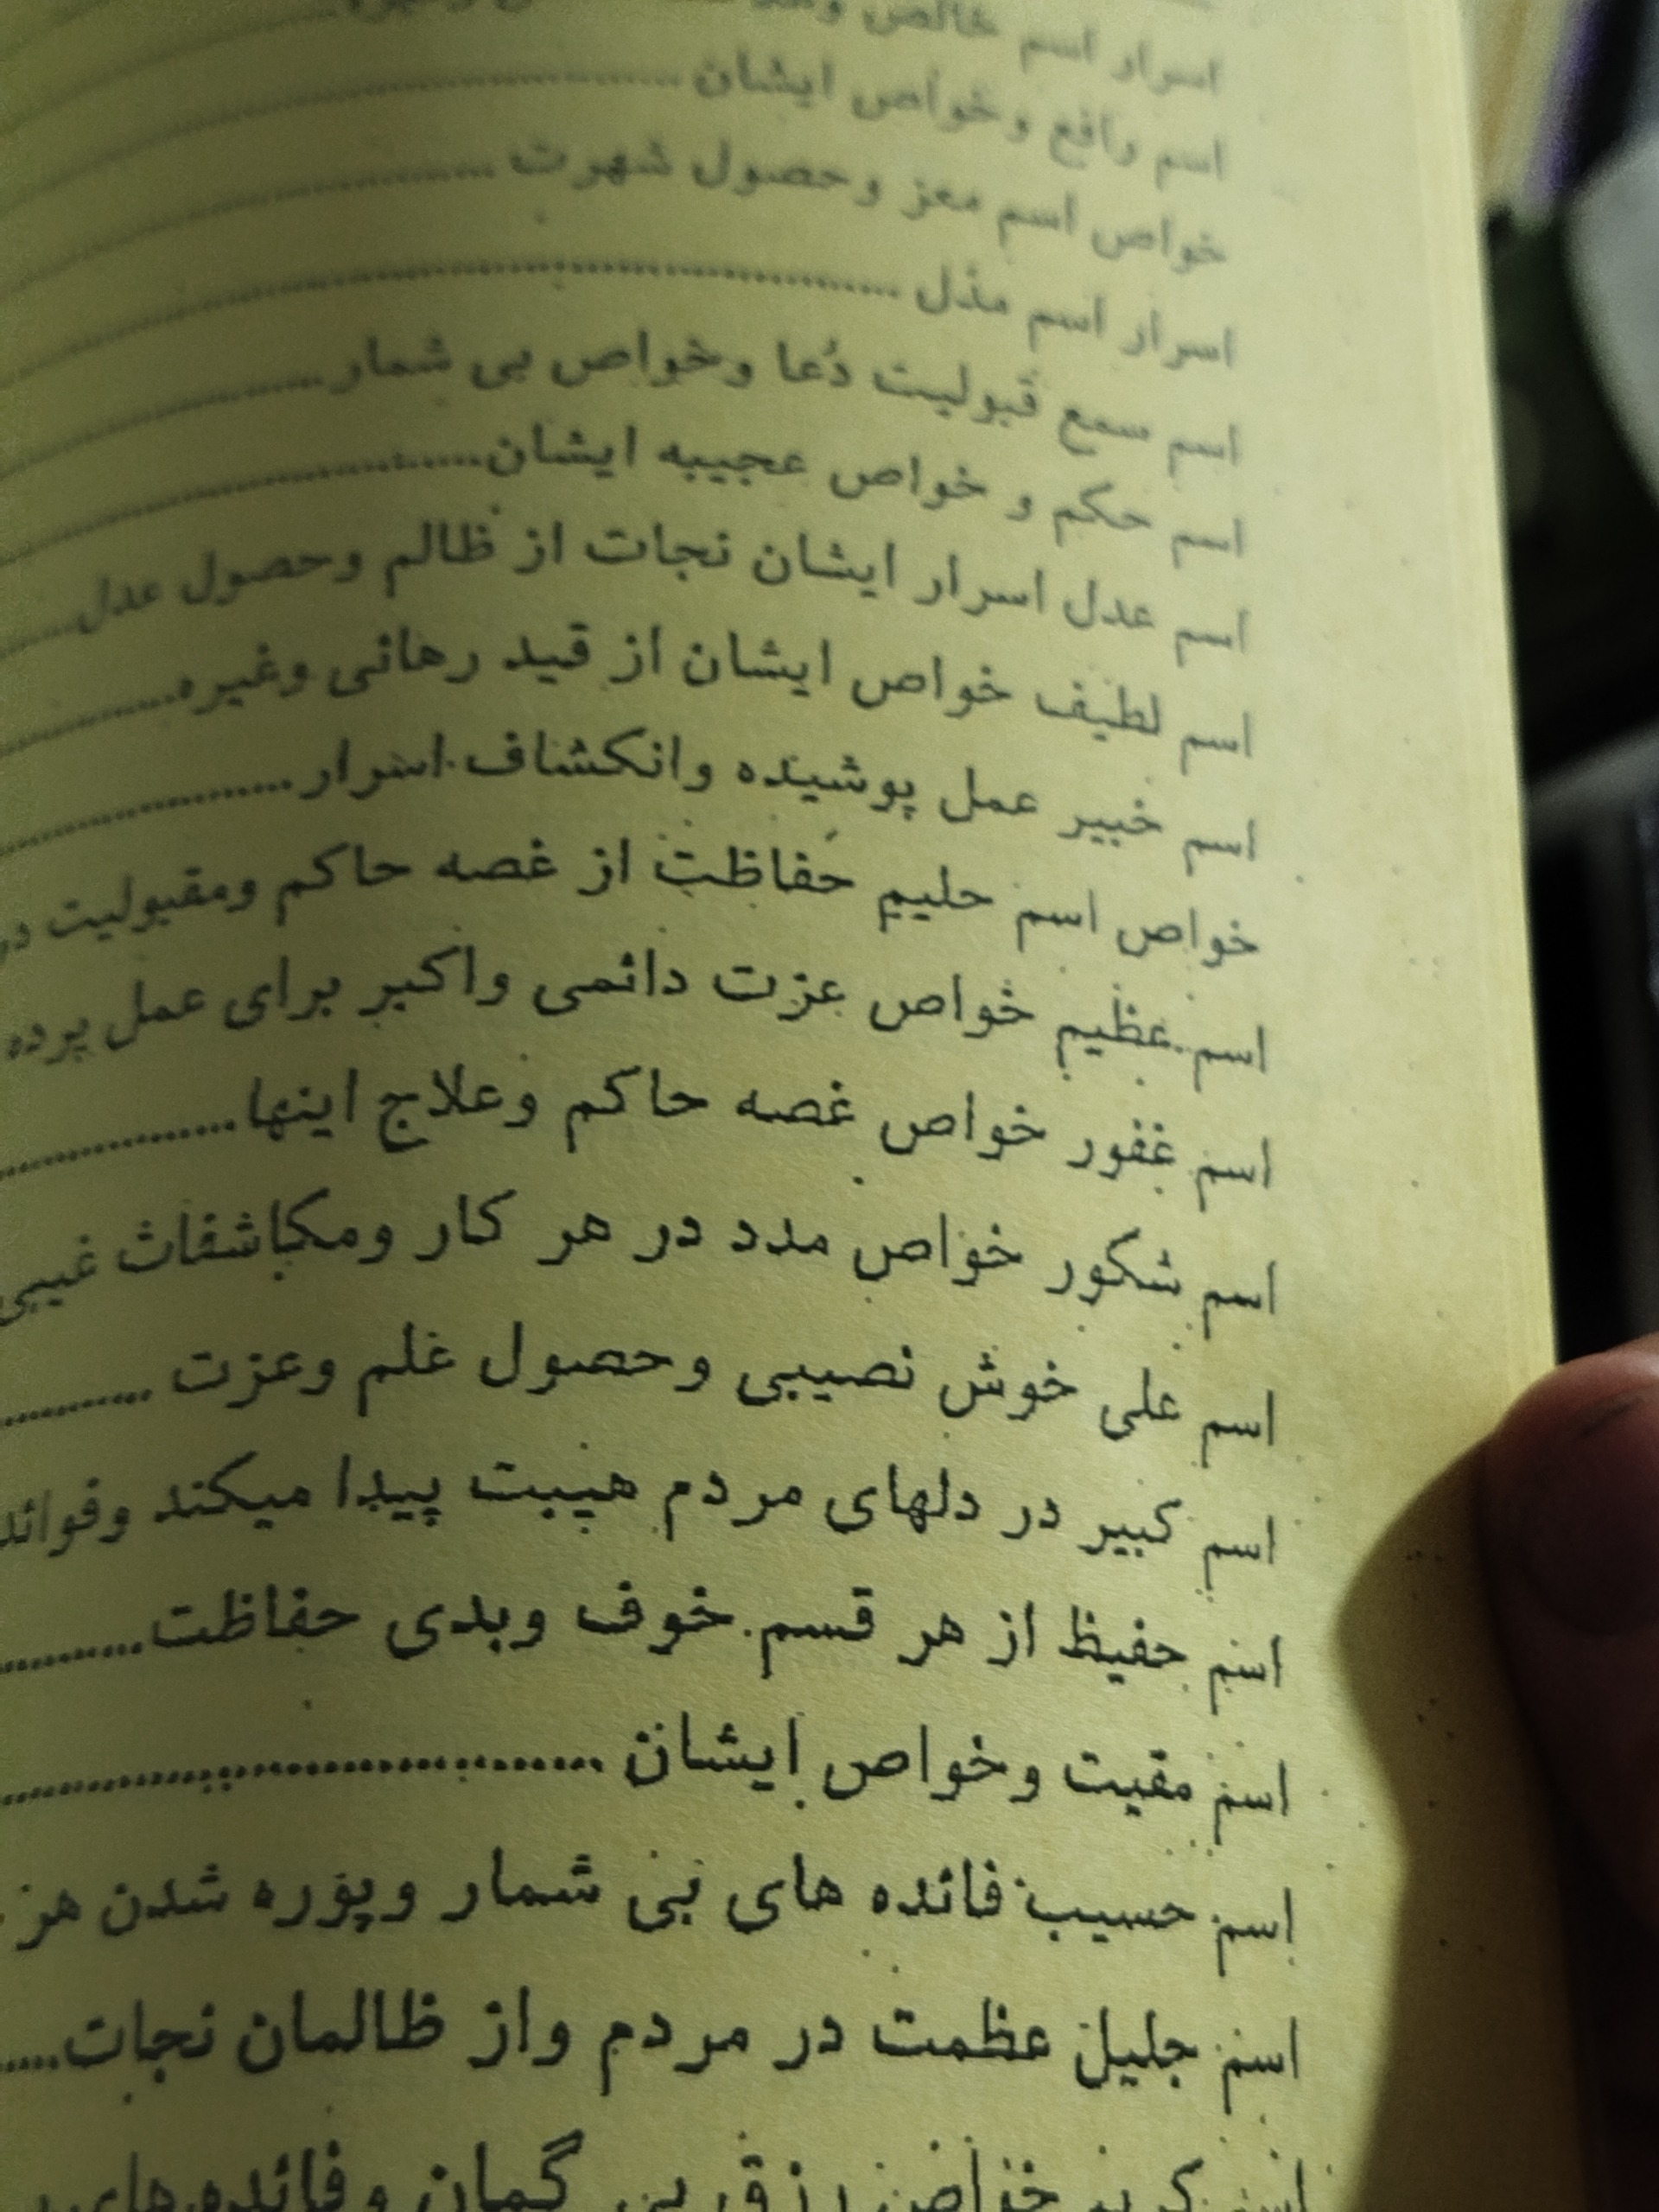 اسرار اسم خالص
اسم رافع وخواص ایشان
خواص اسم معز وحصول شهرت
اسرار اسم مذل
اسم سمع قبولیت دُعا وخواص بی شمار
اسم حکم و خواص عجیبه ایشان
اسم عدل اسرار ایشان نجات از ظالم وحصول عدل
اسم لطیف خواص ایشان از قید رهائی وغیره
اسم خبیر عمل پوشیده وانکشاف اسرار
خواص اسم حلیم حفاظت از غصه حاکم ومقبولیت در
اسم عظیم خواص عزت دائمی واکبر برای عمل پرده
اسم غفور خواص غصه حاکم وعلاج اینها
اسم شکور خواص مدد در هر کار ومکاشفات غیبی
اسم علی خوش نصیبی وحصول علم وعزت
اسم کبیر در دلهای مردم هیبت پیدا میکند وفوائد
اسم حفیظ از هر قسم خوف وبدی حفاظت
اسم مقیت وخواص ایشان
اسم حسیب فائده های بی شمار وپوره شدن هر
اسم جلیل عظمت در مردم واز ظالمان نجات
اسم کریم خواص رزق بی گمان وفائده های